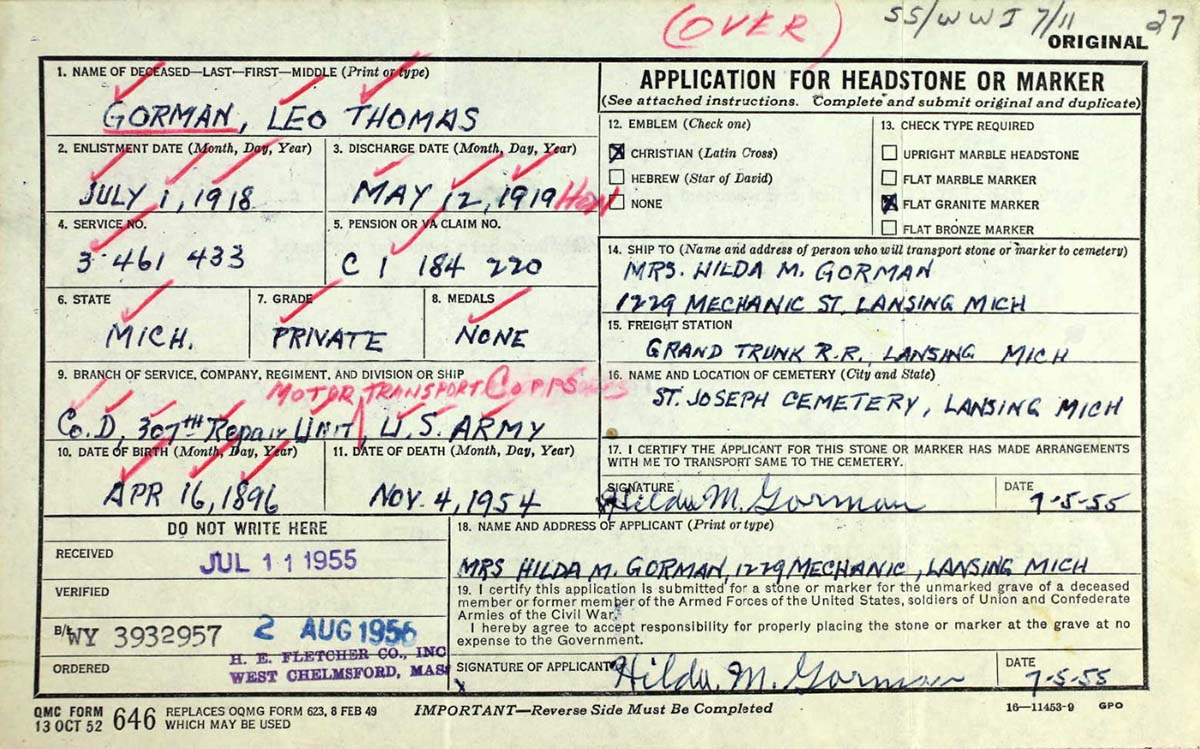 (OVER) SS/WWI 7/11 27
ORIGINAL
1. NAME OF DECEASED—LAST—FIRST—MIDDLE (Print or type)
GORMAN, LEO THOMAS
2. ENLISTMENT DATE (Month, Day, Year)
JULY 1, 1918
3. DISCHARGE DATE (Month, Day, Year)
MAY 12, 1919 Hon
4. SERVICE NO.
3 461 433
5. PENSION OR VA CLAIM NO.
C 1 184 220
6. STATE
MICH.
7. GRADE
PRIVATE
8. MEDALS
NONE
9. BRANCH OF SERVICE, COMPANY, REGIMENT, AND DIVISION OR SHIP
MOTOR TRANSPORT CORPS
Co. D, 307th Repair Unit, U.S. ARMY
10. DATE OF BIRTH (Month, Day, Year)
APR 16, 1896
11. DATE OF DEATH (Month, Day, Year)
NOV. 4, 1954
APPLICATION FOR HEADSTONE OR MARKER
(See attached instructions. Complete and submit original and duplicate)
12. EMBLEM (Check one)
CHRISTIAN (Latin Cross)
HEBREW (Star of David)
NONE
13. CHECK TYPE REQUIRED
UPRIGHT MARBLE HEADSTONE
FLAT MARBLE MARKER
FLAT GRANITE MARKER
FLAT BRONZE MARKER
14. SHIP TO (Name and address of person who will transport stone or marker to cemetery)
MRS. HILDA M. GORMAN
1229 MECHANIC ST. LANSING MICH
15. FREIGHT STATION
GRAND TRUNK R.R., LANSING MICH
16. NAME AND LOCATION OF CEMETERY (City and State)
ST. JOSEPH CEMETERY, LANSING MICH
17. I CERTIFY THE APPLICANT FOR THIS STONE OR MARKER HAS MADE ARRANGEMENTS
WITH ME TO TRANSPORT SAME TO THE CEMETERY.
SIGNATURE
Hilda M. Gorman
DATE
7-5-55
DO NOT WRITE HERE
RECEIVED
JUL 11 1955
VERIFIED
B/L WY 3932957
2 AUG 1956
ORDERED
H. E. FLETCHER CO., INC
WEST CHELMSFORD, MASS
18. NAME AND ADDRESS OF APPLICANT (Print or type)
MRS HILDA M. GORMAN, 1229 MECHANIC, LANSING MICH
19. I certify this application is submitted for a stone or marker for the unmarked grave of a deceased
member or former member of the Armed Forces of the United States, soldiers of Union and Confederate
Armies of the Civil War.
I hereby agree to accept responsibility for properly placing the stone or marker at the grave at no
expense to the Government.
SIGNATURE OF APPLICANT
x Hilda. M. Gorman
DATE
7-5-55
QMC FORM
13 OCT 52 646 REPLACES OQMG FORM 623, 8 FEB 49
WHICH MAY BE USED
IMPORTANT—Reverse Side Must Be Completed
16—11453-9 GPO